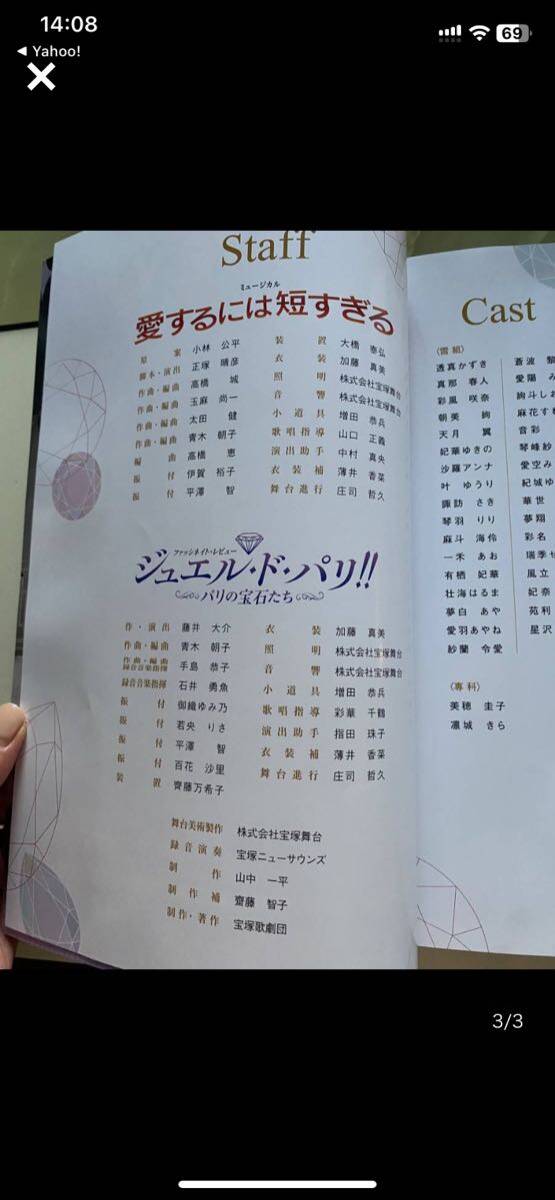 14:08
69
◀ Yahoo!
Staff
ミュージカル
愛するには短すぎる
原案 小林 公平
脚本・演出 正塚 晴彦
作曲・編曲 高橋 城
作曲・編曲 玉麻 尚一
作曲・編曲 太田 健
作曲・編曲 青木 朝子
編曲 高橋 恵
振付 伊賀 裕子
振付 平澤 智
装置 大橋 泰弘
衣装 加藤 真美
照明 株式会社宝塚舞台
音響 株式会社宝塚舞台
小道具 増田 恭兵
歌唱指導 山口 正義
演出助手 中村 真央
衣装補 薄井 香菜
舞台進行 庄司 哲久
ファッシネイト・レビュー
ジュエル・ド・パリ!!
パリの宝石たち
作・演出 藤井 大介
作曲・編曲 青木 朝子
作曲・編曲
録音音楽指揮 手島 恭子
録音音楽指揮 石井 勇魚
振付 御織ゆみ乃
振付 若央 りさ
振付 平澤 智
振付 百花 沙里
装置 齊藤万希子
衣装 加藤 真美
照明 株式会社宝塚舞台
音響 株式会社宝塚舞台
小道具 増田 恭兵
歌唱指導 彩華 千鶴
演出助手 指田 珠子
衣装補 薄井 香菜
舞台進行 庄司 哲久
舞台美術製作 株式会社宝塚舞台
録音演奏 宝塚ニューサウンズ
制作 山中 一平
制作補 齋藤 智子
制作・著作 宝塚歌劇団
Cast
〈雪組〉
透真かずき
真那 春人
彩風 咲奈
朝美 絢
天月 翼
妃華ゆきの
沙羅アンナ
叶 ゆうり
諏訪 さき
琴羽 りり
麻斗 海伶
一禾 あお
有栖 妃華
壮海はるま
夢白 あや
愛羽あやね
紗蘭 令愛
蒼波 黎
愛陽 み
絢斗しお
麻花すわ
音彩
琴峰紗
愛空み
紀城ゆ
華世
夢翔
彩名
瑞季せ
風立
妃奈
苑利
星沢
〈専科〉
美穂 圭子
凛城 きら
3/3